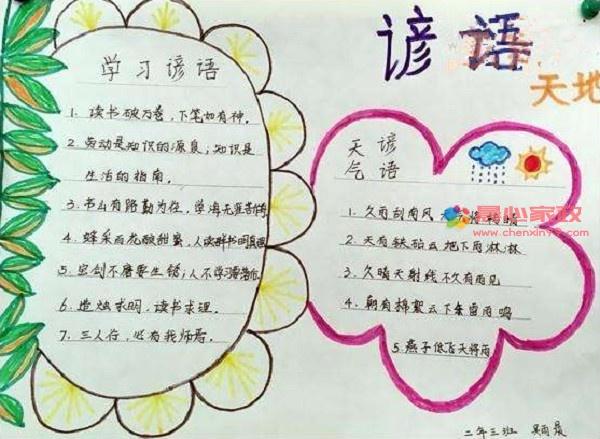 谚语
天地
学习谚语
1. 读书破万卷，下笔如有神。
2. 劳动是知识的源泉；知识是
生活的指南。
3. 书山有路勤为径，学海无涯苦作舟
4. 蜂采百花酿甜蜜，人读群书明真理
5. 宝剑不磨要生锈；人不学习要落后
6. 造烛求明，读书求理。
7. 三人行，必有我师焉。
天气
谚语
1. 久雨刮南风 天
2. 天有铁砧云 地下雨淋淋
3. 久晴天射线 不久有雨见
4. 朝有棉絮云 下午雷雨鸣
5. 燕子低飞天将雨
易心家政
www.chenxin99.com
二年三班 吴雨晨